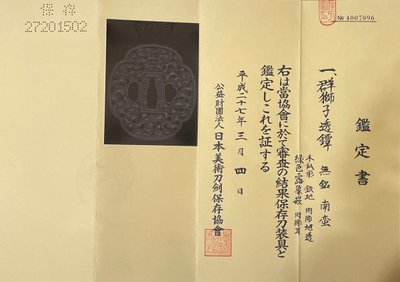 № 4007096
鑑定書
一、群獅子透鐔 無銘 南蛮
木瓜形 鉄地 肉彫地透
象嵌
右は當協會に於て審査の結果保存刀装具と
鑑定しこれを証する
平成二十七年三月四日
公益財團法人日本美術刀劍保存協會
保存
27201502